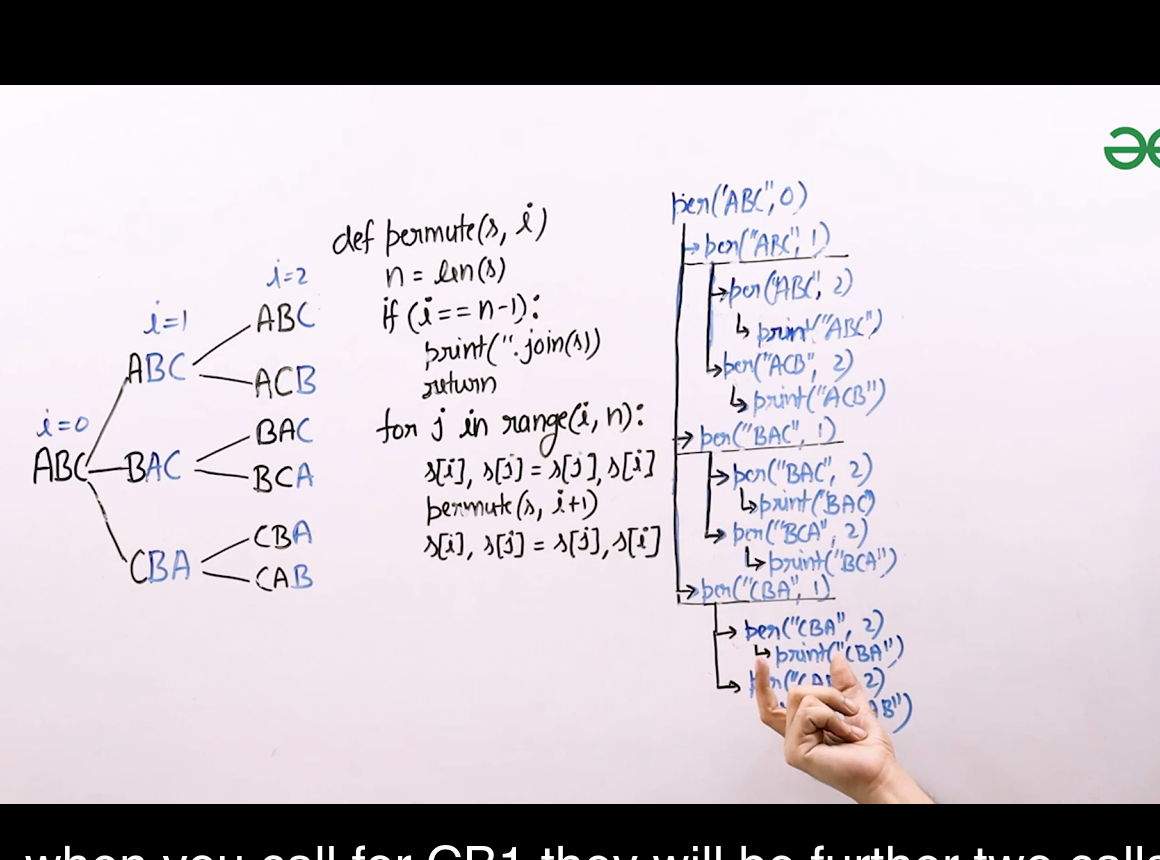 i=0
ABC
i=1
ABC
BAC
CBA
i=2
ABC
ACB
BAC
BCA
CBA
CAB
def permute(s, i)
n = len(s)
if (i == n-1):
print(''.join(s))
return
for j in range(i, n):
s[i], s[j] = s[j], s[i]
permute(s, i+1)
s[i], s[j] = s[j], s[i]
per("ABC", 0)
per("ABC", 1)
per("ABC", 2)
print("ABC")
per("ACB", 2)
print("ACB")
per("BAC", 1)
per("BAC", 2)
print("BAC)
per("BCA", 2)
print("BCA")
per("CBA", 1)
per("CBA", 2)
print("CBA")
2)
AB")
when you call for CB1 they will be further two calls